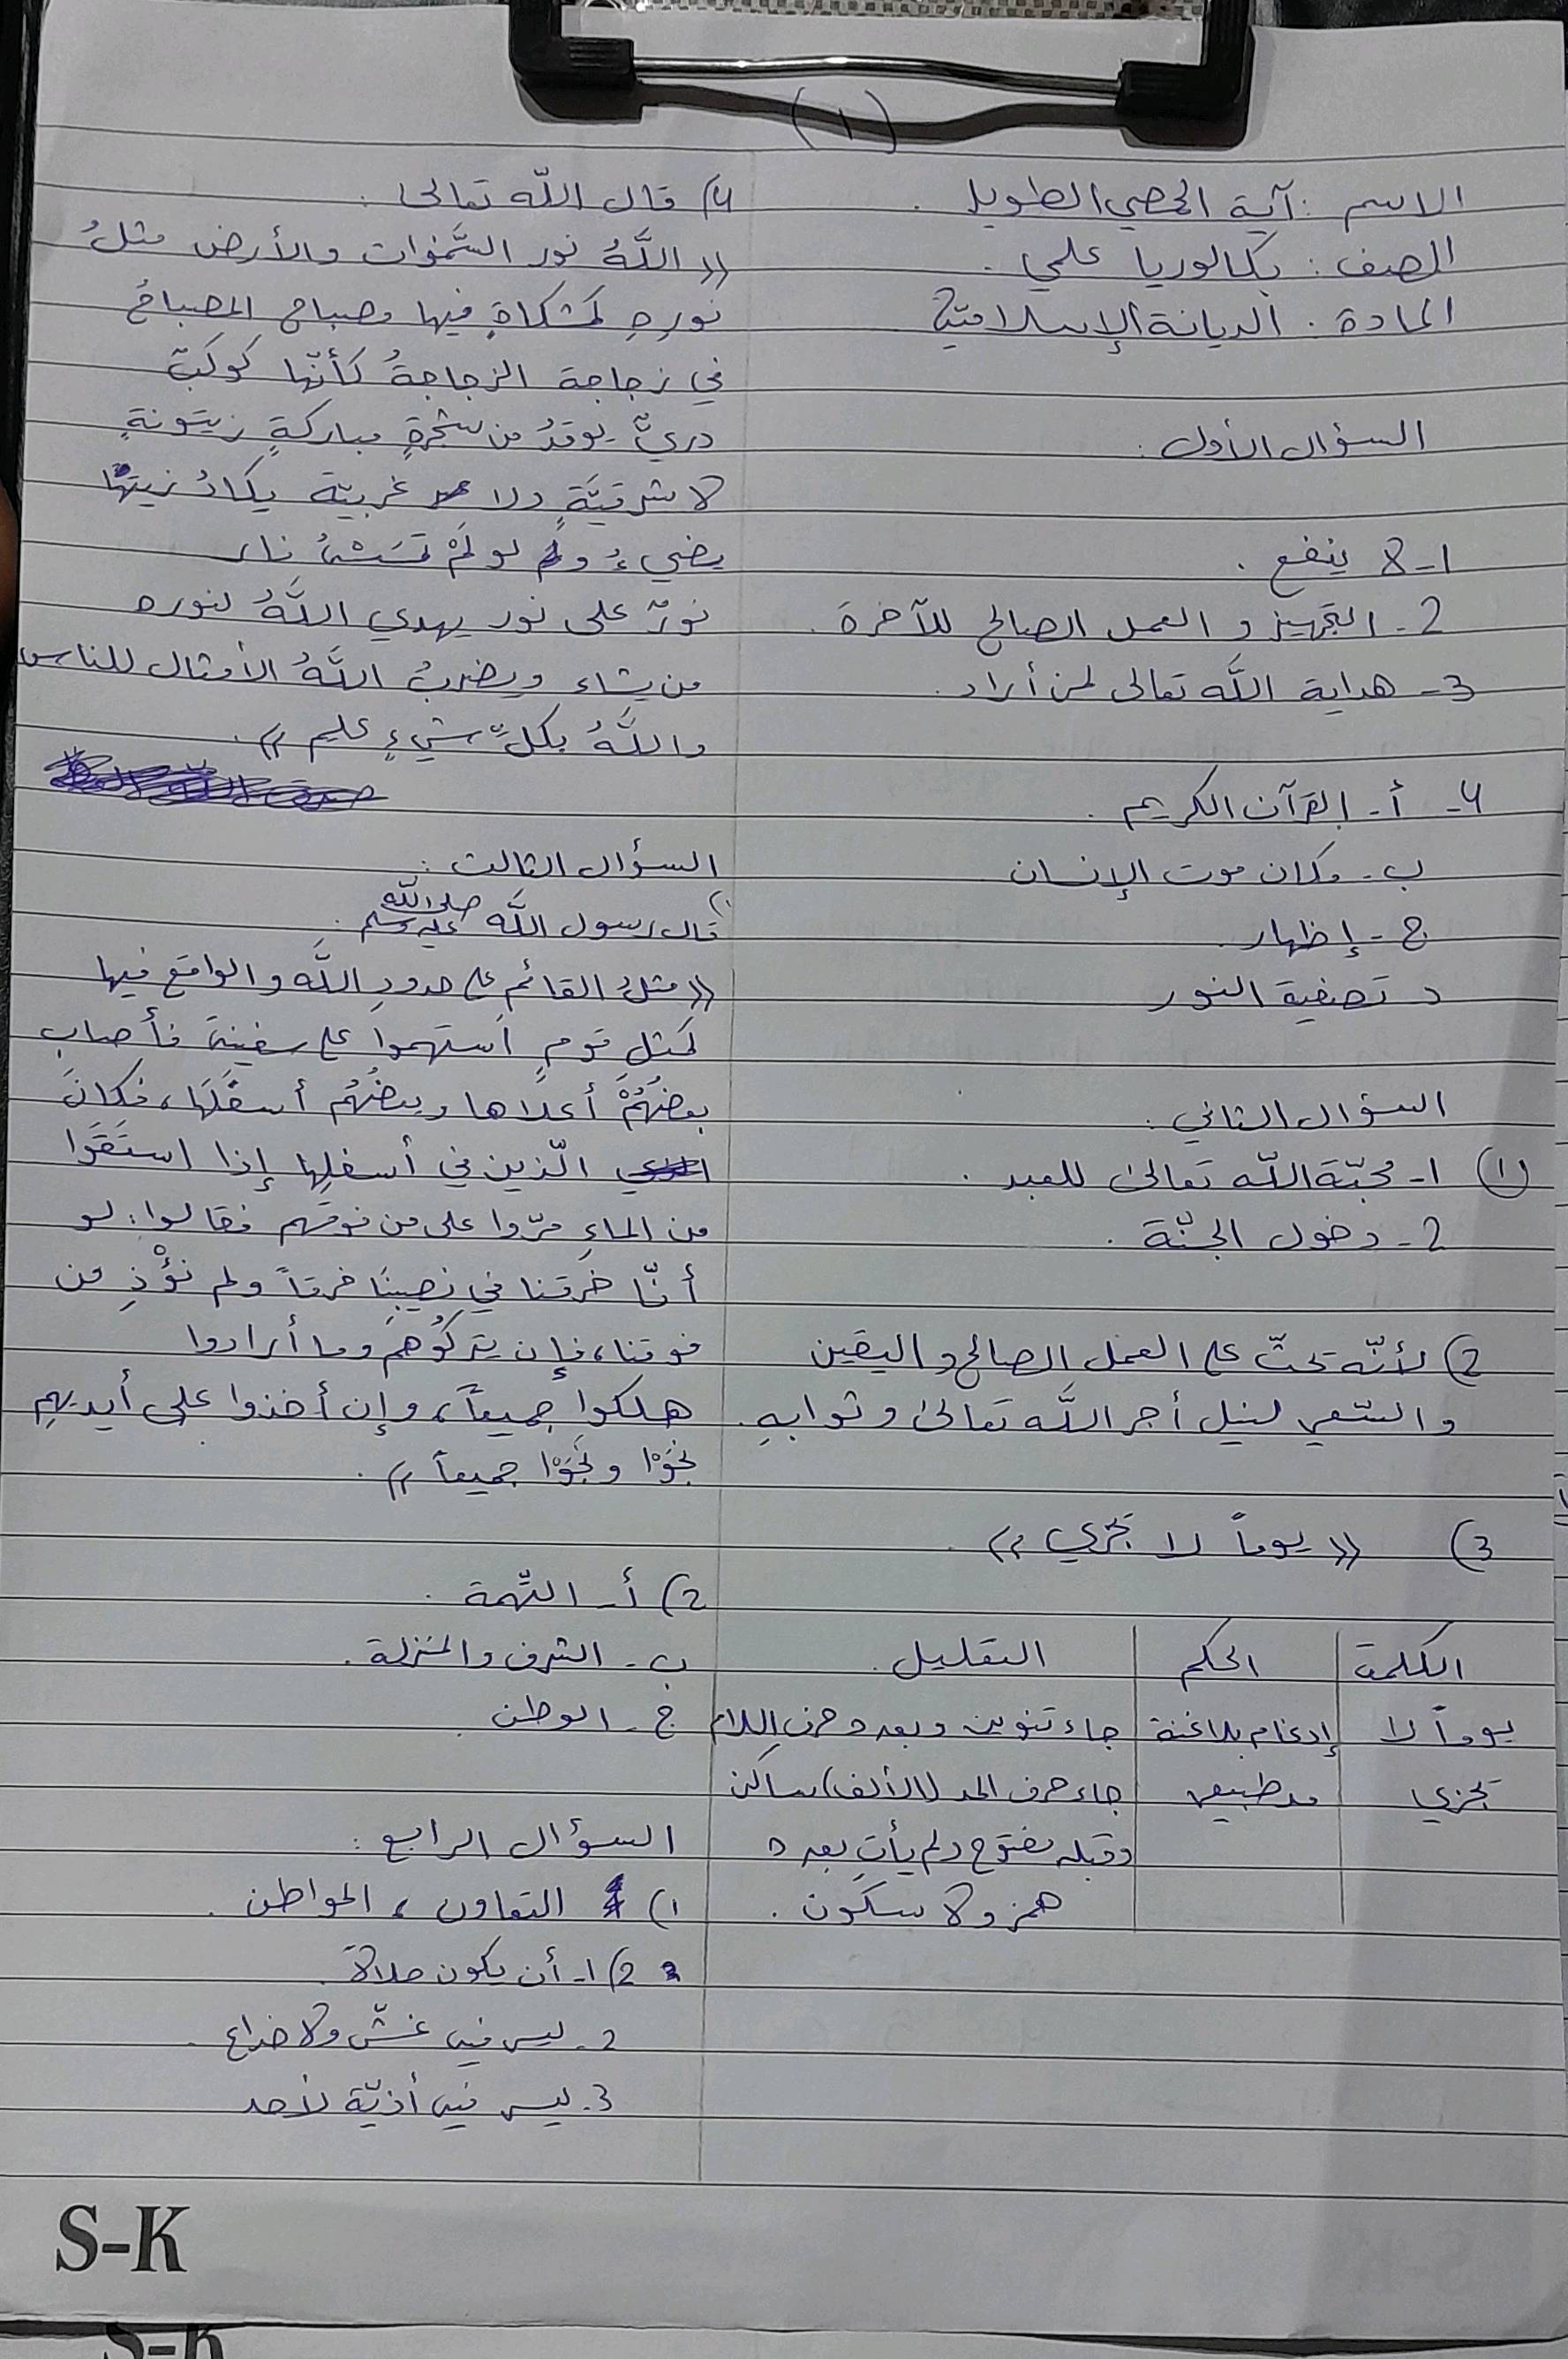 (١)
الاسم : آية الحصي الطويل .
الصف : بكالوريا علمي .
المادة . الديانة الإسلاميّة
السؤال الأول :
1- لا ينفع .
2- التجهيز و العمل الصالح للآخرة .
3- هداية اللّه تعالى لمن أراد .
4- أ- القرآن الكريم .
ب- مكان موت الإنسان
ج- إظهار
د تصفية النور
السؤال الثاني :
(1) 1- محبّة اللّه تعالى للعبد .
2- دخول الجنّة .
2) لأنّه تحثّ على العمل الصالح و اليقين
و السّعي لنيل أجر اللّه تعالى و ثوابهِ .
3) « يوماً لا تجزي » .
الكلمة الحكم التعليل .
يوماً لا إدغام بلاغنة جاء تنوين وبعده حرف اللام
تجزي مد طبيعي جاء حرف المد (الألف) ساكن
وقبله مفتوح ولم يأتِ بعده
همز ولا سكون .
4) قال اللّه تعالى :
« اللّهُ نور السّمٰوات والأرض مثلُ
نورِهِ كمشكاةٍ فيها مصباح المصباحُ
في زجاجة الزجاجةُ كأنّها كوكبٌ
دريٌّ يوقدُ من شجرةٍ مباركةٍ زيتونةٍ
لا شرقيّةٍ ولا غربيّة يكادُ زيتها
يضيءُ و لو لمْ تمسَسْهُ نار
نورٌ على نور يهدي اللّهُ لنوره
من يشاء ويضربُ اللّهُ الأمثال للناس
واللّهُ بكلّ شيءٍ عليم » .
السؤال الثالث :
1)
قال رسول اللّه صلى اللّه عليه وسلم :
« مثلُ القائم على حدودِ اللّه و الواقع فيها
كمثلِ قومٍ استهموا على سفينة فأصاب
بعضُهُمْ أعلاها وبعضُهُم أسفَلَها ، فكانَ
الّذين في أسفلِها إذا استَقَوا
من الماءِ مرّوا على من فوقهم فقالوا: لو
أنّا خرقنا في نصيبنَا خرقاً ولم نؤْذِ من
فوقنا ، فإن يتركُوهم وما أرادوا
هلكوا جميعاً ، وإن أخذوا على أيديهِم
نجَوْا و نجَوْا جميعاً » .
2) أ- التّهمة .
ب- الشرف والمنزلة .
ج- الوطن
السؤال الرابع :
1) التعاون ، المواطن .
2) 1- أن يكون حلالاً
2- ليس فيه غشّ ولا خداع .
3- ليس فيه أذيّة لأحد
S-K
S-K